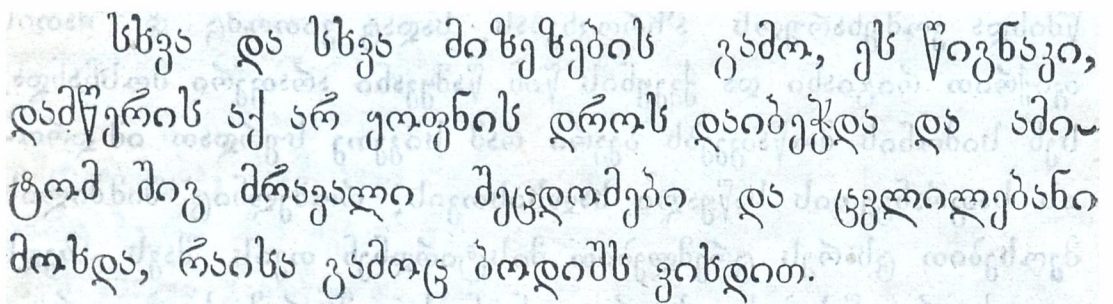 სხვა და სხვა მიზეზების გამო, ეს წიგნაკი,
დამწერის აქ არ ყოფნის დროს დაიბეჭდა და ამი-
ტომ შიგ მრავალი შეცდომები და ცვლილებანი
მოხდა, რაისა გამოც ბოდიშს ვიხდით.